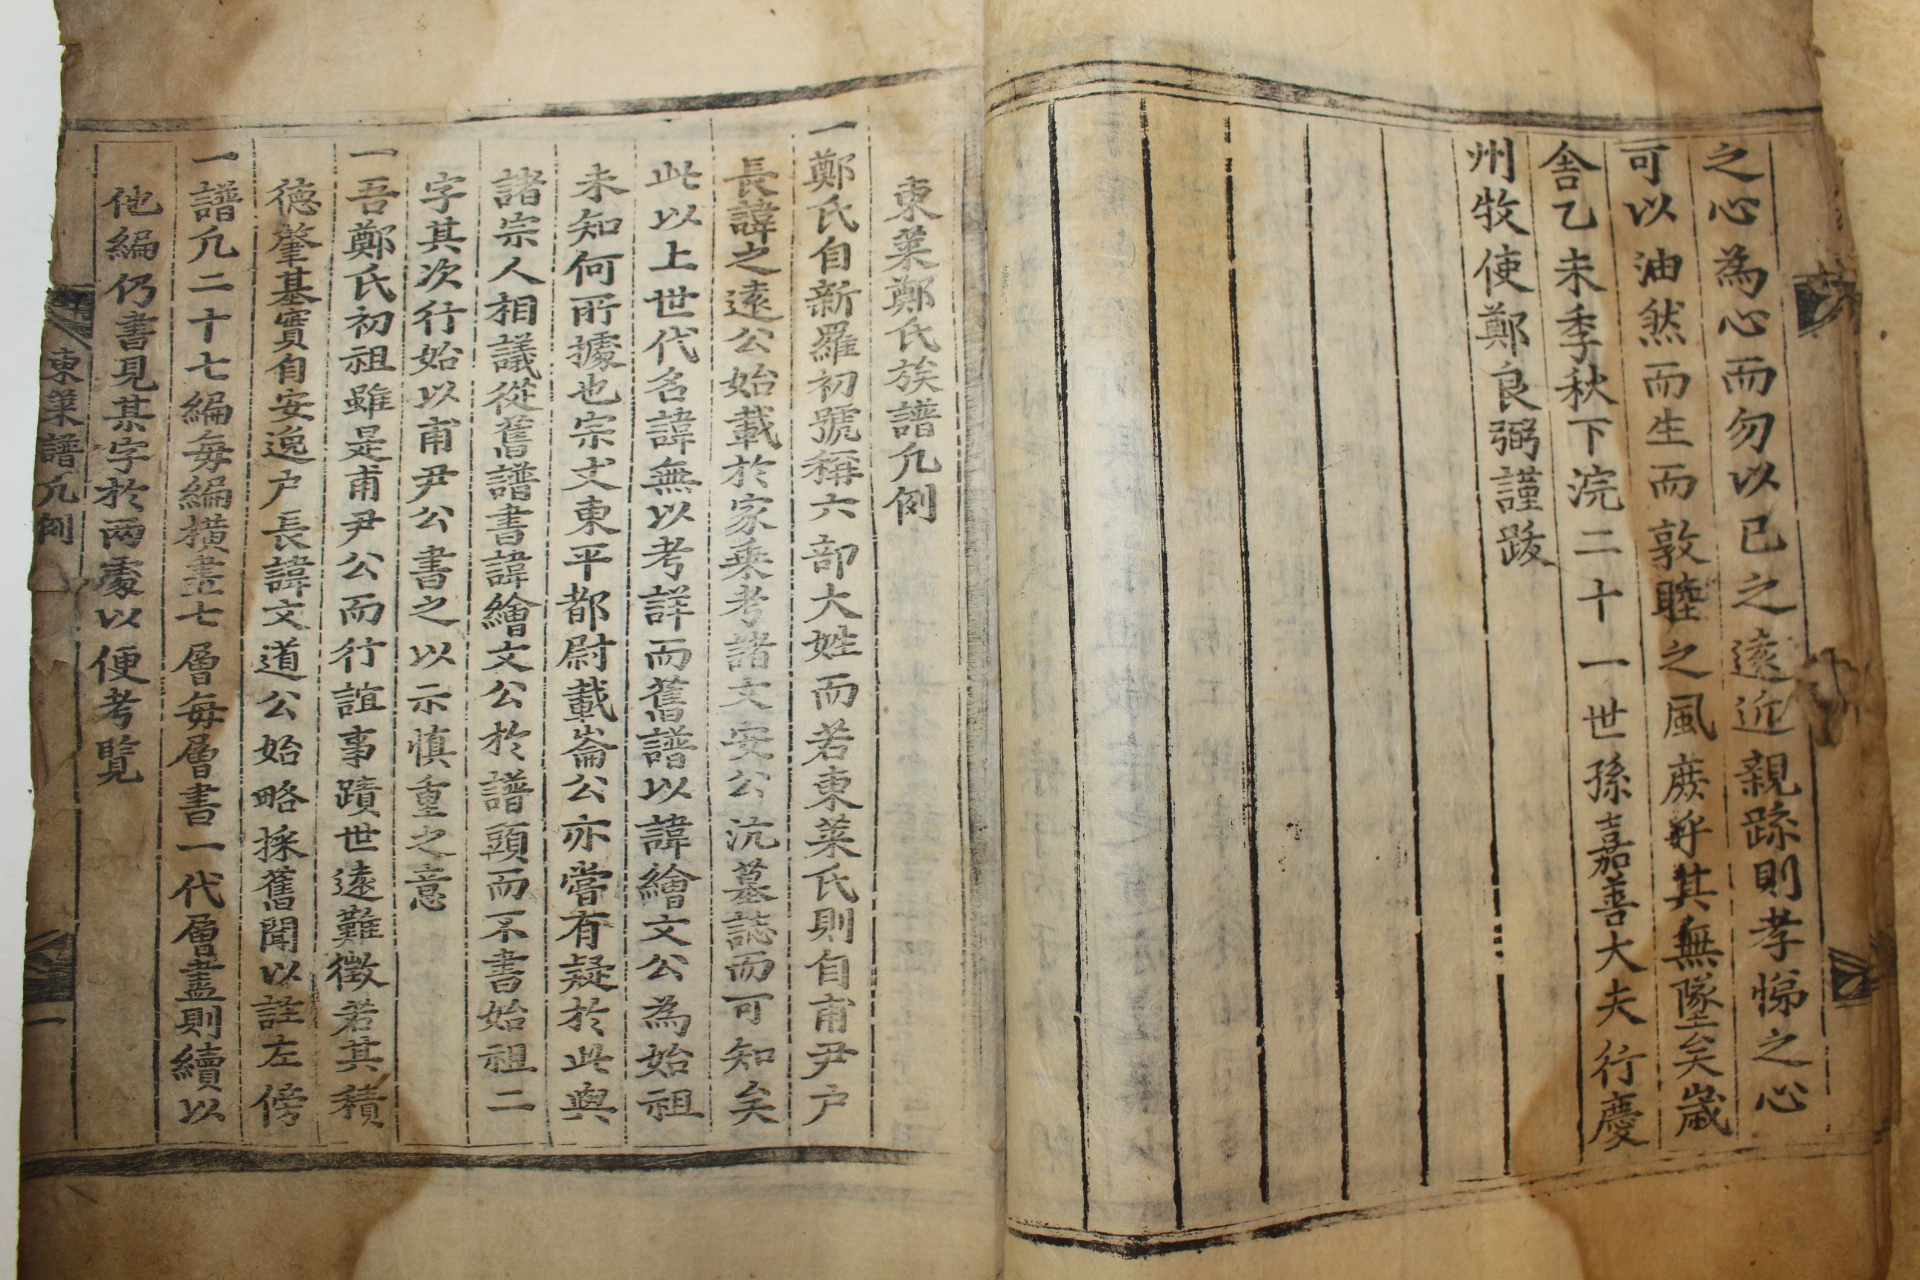 之心為心而勿以已之遠近親踈則孝悌之心
可以油然而生而敦睦之風庶乎其無墜矣歲
舍乙未季秋下浣二十一世孫嘉善大夫行慶
州牧使鄭良弼謹跋
東萊鄭氏族譜凡例
一鄭氏自新羅初號稱六部大姓而若東萊氏則自甫尹戶
長諱之遠公始載於家乘考諸文安公沆墓誌而可知矣
此以上世代名諱無以考詳而舊譜以諱繪文公為始祖
未知何所據也宗丈東平都尉載崙公亦嘗有疑於此與
諸宗人相議從舊譜書諱繪文公於譜頭而不書始祖二
字其次行始以甫尹公書之以示慎重之意
一吾鄭氏初祖雖是甫尹公而行誼事蹟世遠難徵若其積
德肇基實自安逸戶長諱文道公始略採舊聞以註左傍
一譜凡二十七編每編橫畫七層每層書一代層盡則續以
他編仍書見某字於兩處以便考覧
東萊譜凡例
一